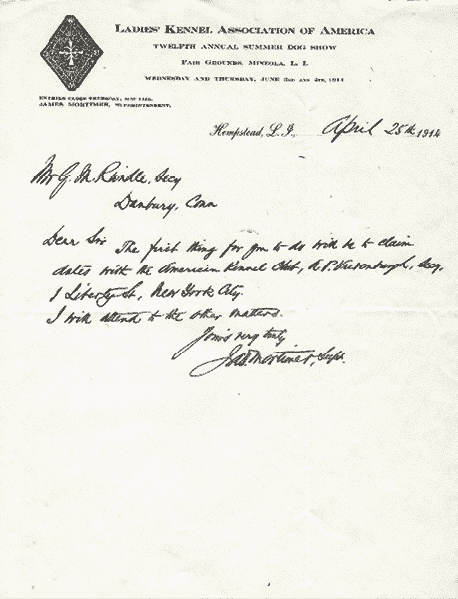 LADIES' KENNEL ASSOCIATION OF AMERICA
TWELFTH ANNUAL SUMMER DOG SHOW
FAIR GROUNDS, MINEOLA, L. I.
WEDNESDAY AND THURSDAY, JUNE 3RD AND 4TH, 1914
ENTRIES CLOSE THURSDAY, MAY
JAMES MORTIMER, SUPERINTENDENT.
Hempstead, L. I., April 25th 1914
Mr G. M. Rundle, Secy
Danbury, Conn
Dear Sir The first thing for you to do will be to claim
dates with the American Kennel Club, A. P. Vredenburgh, Secy,
1 Liberty St, New York City.
I will attend to the other matters.
Yours very truly
Jas. Mortimer, Supt.